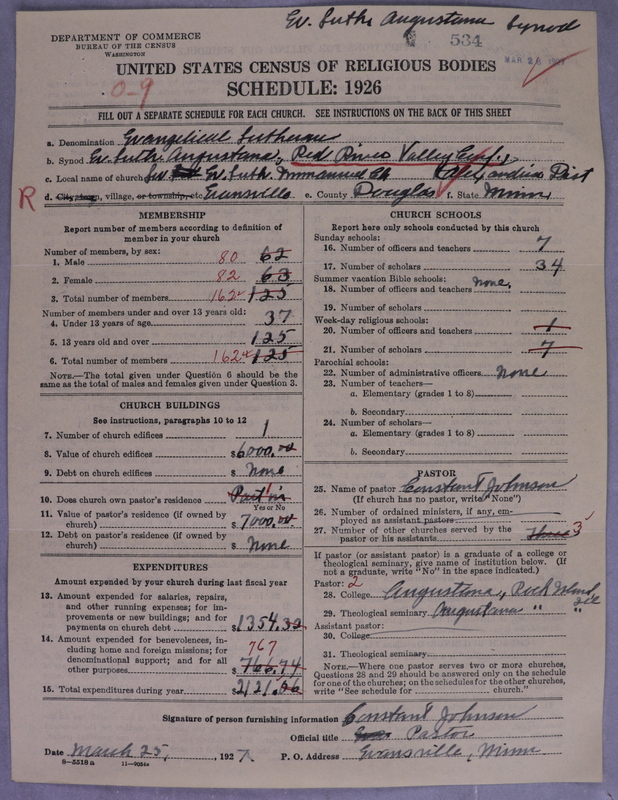 Ev. Luth. Augustana Synod
534
DEPARTMENT OF COMMERCE
BUREAU OF THE CENSUS
WASHINGTON
MAR 26
UNITED STATES CENSUS OF RELIGIOUS BODIES
0-9
SCHEDULE: 1926
FILL OUT A SEPARATE SCHEDULE FOR EACH CHURCH. SEE INSTRUCTIONS ON THE BACK OF THIS SHEET
a. Denomination Evangelical Lutheran
b. Synod Ev. Luth. Augustana, Red River Valley Conf.,
c. Local name of church Ev. Luth. Immanuel Ch Alexandria Dist
R d. City, town, village, or township, etc Evansville e. County Douglas f. State Minn
MEMBERSHIP
Report number of members according to definition of
member in your church
Number of members, by sex:
1. Male 80 62
2. Female 82 63
3. Total number of members 162 125
Number of members under and over 13 years old:
4. Under 13 years of age 37
5. 13 years old and over 125
6. Total number of members 162 125
NOTE.—The total given under Question 6 should be the
same as the total of males and females given under Question 3.
CHURCH BUILDINGS
See instructions, paragraphs 10 to 12
7. Number of church edifices 1
8. Value of church edifices $6000.00
9. Debt on church edifices $ None
10. Does church own pastor's residence Part in
Yes or No
11. Value of pastor's residence (if owned by
church) $7000.00
12. Debt on pastor's residence (if owned by
church) $ None
EXPENDITURES
Amount expended by your church during last fiscal year
13. Amount expended for salaries, repairs,
and other running expenses; for im-
provements or new buildings; and for
payments on church debt $1354.32
14. Amount expended for benevolences, in-
cluding home and foreign missions; for
denominational support; and for all
other purposes 767 $766.74
15. Total expenditures during year $2121.06
CHURCH SCHOOLS
Report here only schools conducted by this church
Sunday schools:
16. Number of officers and teachers 7
17. Number of scholars 34
Summer vacation Bible schools:
18. Number of officers and teachers None.
19. Number of scholars
Week-day religious schools:
20. Number of officers and teachers 1
21. Number of scholars 7
Parochial schools:
22. Number of administrative officers None
23. Number of teachers—
a. Elementary (grades 1 to 8)
b. Secondary
24. Number of scholars—
a. Elementary (grades 1 to 8)
b. Secondary
PASTOR
25. Name of pastor Constant Johnson
(If church has no pastor, write "None")
26. Number of ordained ministers, if any, em-
ployed as assistant pastors
27. Number of other churches served by the
pastor or his assistants three 3
If pastor (or assistant pastor) is a graduate of a college or
theological seminary, give name of institution below. (If
not a graduate, write "No" in the space indicated.)
Pastor: 2
28. College Augustana, Rock Island Ill
29. Theological seminary Augustana " "
Assistant pastor:
30. College
31. Theological seminary
NOTE.—Where one pastor serves two or more churches,
Questions 28 and 29 should be answered only on the schedule
for one of the churches; on the schedules for the other churches,
write "See schedule for church."
Signature of person furnishing information Constant Johnson
Official title Pastor
Date March 25, 1927 P. O. Address Evansville, Minn
8-5518a 11-9034a